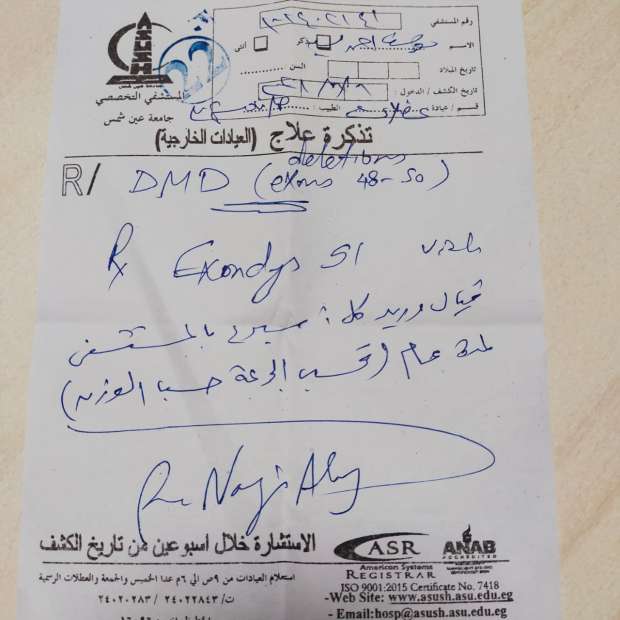 ASUSH
رقم المستشفي
الاسم ذكر أنثى
تاريخ الميلاد السن
تاريخ الكشف / الدخول :
قسم / عيادة الطبيب :
المستشفي التخصصي
جامعة عين شمس
تذكرة علاج (العيادات الخارجية)
deletions
R/ DMD (exons 48-50)
Rx Exondys 51 vials
وريد كل أسبوع بالمستشفى
لمدة عام (تحسب الجرعة حسب الوزن)
الاستشارة خلال اسبوعين من تاريخ الكشف
استعلام العيادات من ٩ص الي ٦م عدا الخميس والجمعة والعطلات الرسمية
ت/ ٢٤٠٢٢٨٤٣ / ٢٤٠٢٠٢٨٣
ASR
American Systems
REGISTRAR
ANAB
ACCREDITED
ISO 9001:2015 Certificate No. 7418
-Web Site: www.asush.asu.edu.eg
- Email:hosp@asush.asu.edu.eg